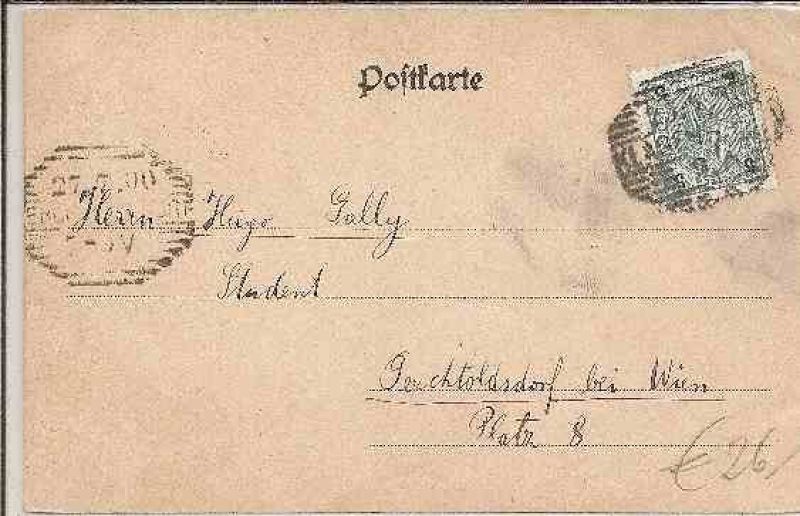 Postkarte
Herrn Hugo Gally
Student
Perchtoldsdorf bei Wien
Platz 8
€ 26